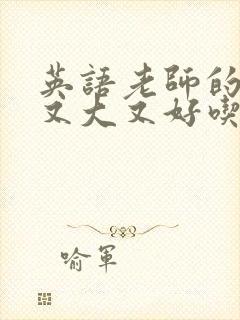 英語老師的
又大又好喫
喻軍